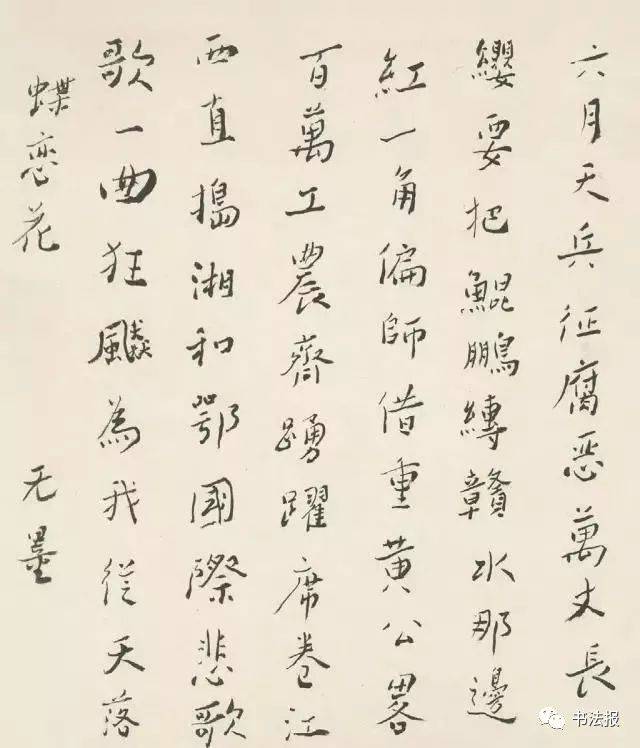 六月天兵征腐恶萬丈長
纓要把鯤鵬縳贛水那邊
紅一角偏師借重黄公畧
百萬工農齊踴躍席卷江
西直搗湘和鄂國際悲歌
歌一曲狂飇為我從天落
蝶恋花 无墨
书法报